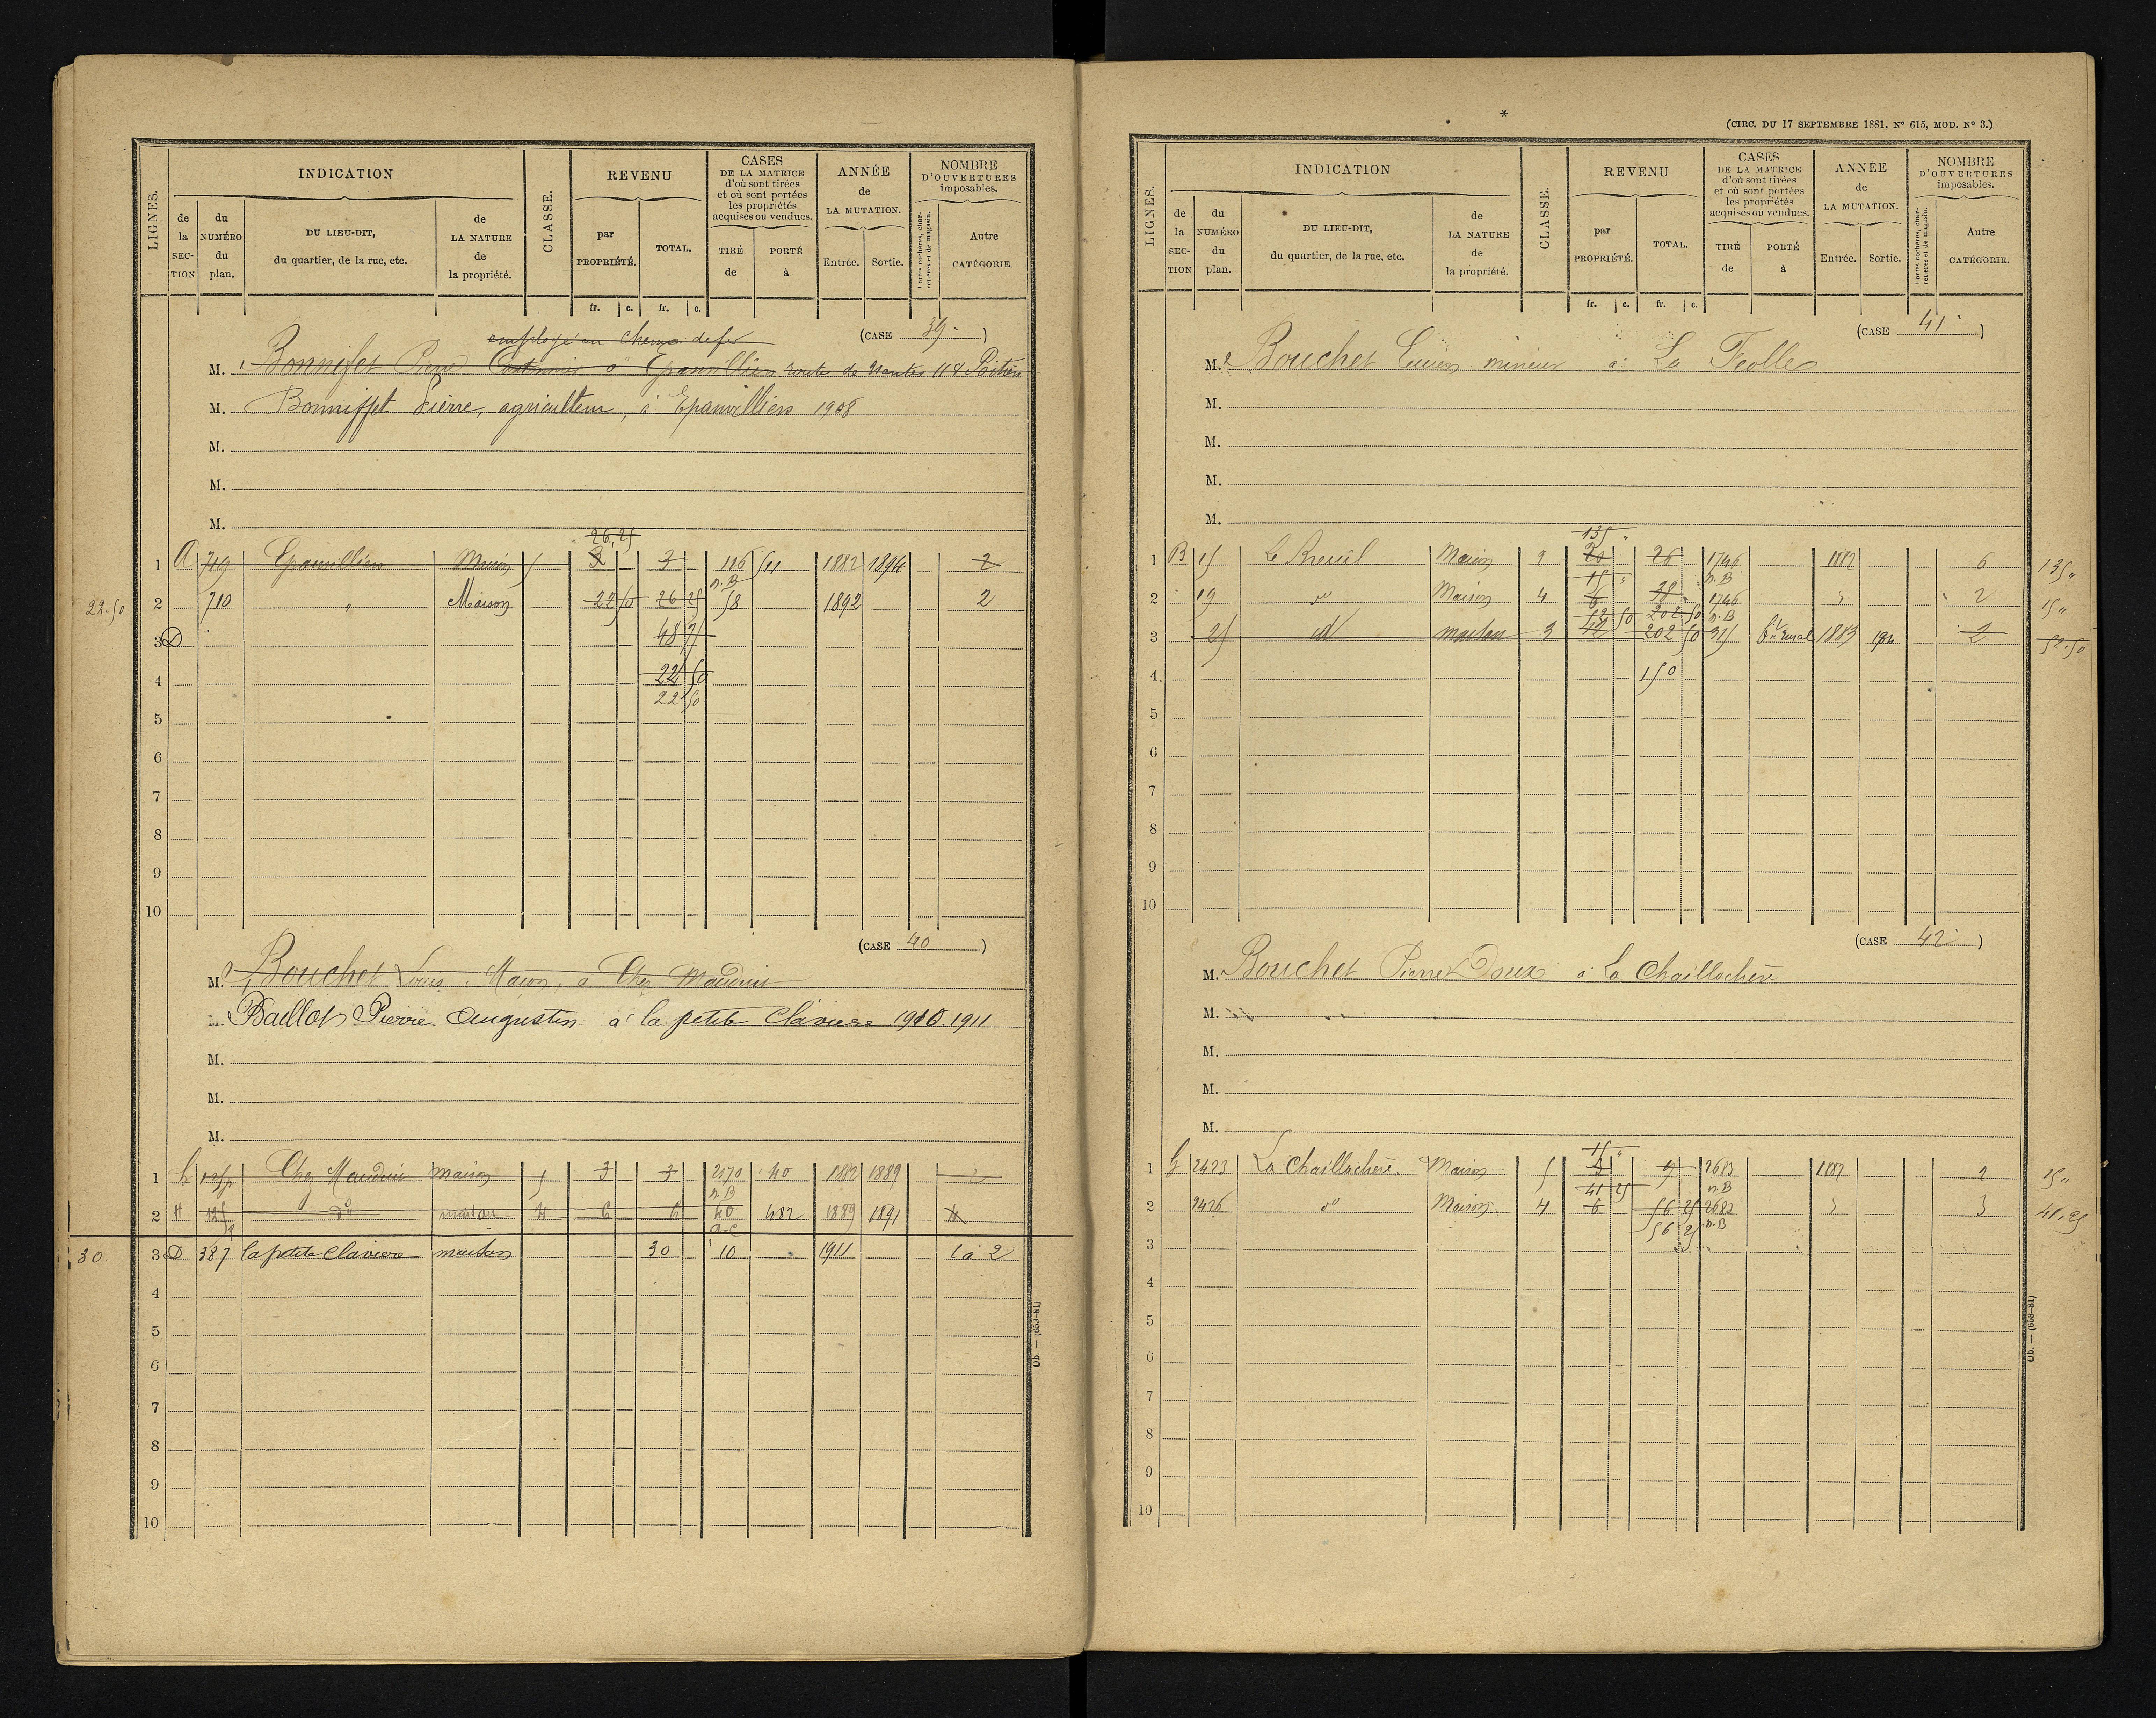 LIGNES.
INDICATION
de la SECTION
du NUMÉRO du plan.
DU LIEU-DIT, du quartier, de la rue, etc.
de LA NATURE de la propriété.
CLASSE.
REVENU
par PROPRIÉTÉ.
TOTAL.
CASES DE LA MATRICE d'où sont tirées et où sont portées les propriétés acquises ou vendues.
TIRÉ de
PORTÉ à
ANNÉE de LA MUTATION.
Entrée. Sortie.
NOMBRE D'OUVERTURES imposables.
Portes cochères, charretières et de magasin.
Autre CATÉGORIE.
fr. c. fr. c.
employé au chemin de fer
(CASE 39.)
M. Bonnifet Pierre à Epanvilliers route de Nantes 118 Poitiers
M. Bonniffet Pierre, agriculteur, à Epanvilliers 1908
M.
M.
M.
26,25
1 A 719 Epanvilliers Maison 5 3 3 116 511 1882 1894 2
n.B
22.50 2 710 " Maison 22 50 26 25 58 1892 2
3 D 48 75
4 22 50
22 50
5
6
7
8
9
10
(CASE 40)
M. Bouchet Louis, Maçon, à Chez Mauduit
Baillot Pierre Augustin à la petite Claviere 1910.1911
M.
M.
M.
1 Chez Mauduit maison 5 3 3 2170 40 1882 1889 2
n.B
2 H dº maison 4 6 6 40 482 1889 1891 4
a-c
30. 3 D 387 la petite Claviere maison 30 10 1911 1 à 2
4
5
6
7
8
9
10
Ob. — (653-81)
(CIRC. DU 17 SEPTEMBRE 1881, Nº 615, MOD. Nº 3.)
LIGNES.
INDICATION
de la SECTION
du NUMÉRO du plan.
DU LIEU-DIT, du quartier, de la rue, etc.
de LA NATURE de la propriété.
CLASSE.
REVENU
par PROPRIÉTÉ.
TOTAL.
CASES DE LA MATRICE d'où sont tirées et où sont portées les propriétés acquises ou vendues.
TIRÉ de
PORTÉ à
ANNÉE de LA MUTATION.
Entrée. Sortie.
NOMBRE D'OUVERTURES imposables.
Portes cochères, charretières et de magasin.
Autre CATÉGORIE.
fr. c. fr. c.
(CASE 41)
M. Bouchet Lucien mineur à La Feolle
M.
M.
M.
M.
135 "
1 B 15 Le Breuil Maison 2 20 26 1746 1882 6 135 "
15 " n.B
2 19 dº Maison 4 6 1746 " 2 15 "
52 50 202 50 n.B
3 25 id maison 3 42 202 50 315 Bt rural 1883 2 52.50
4 150
5
6
7
8
9
10
(CASE 42)
M. Bouchet Pierre Doux à La Chaillochère
M.
M.
M.
M.
15 "
1 G 2423 La Chaillochère Maison 5 3 9 2683 1882 2 15 "
41 25 n.B
2 2426 dº Maison 4 6 56 25 2683 " 3 41.25
56 25 n.B
3
4
5
6
7
8
9
10
Ob. — (653-81)